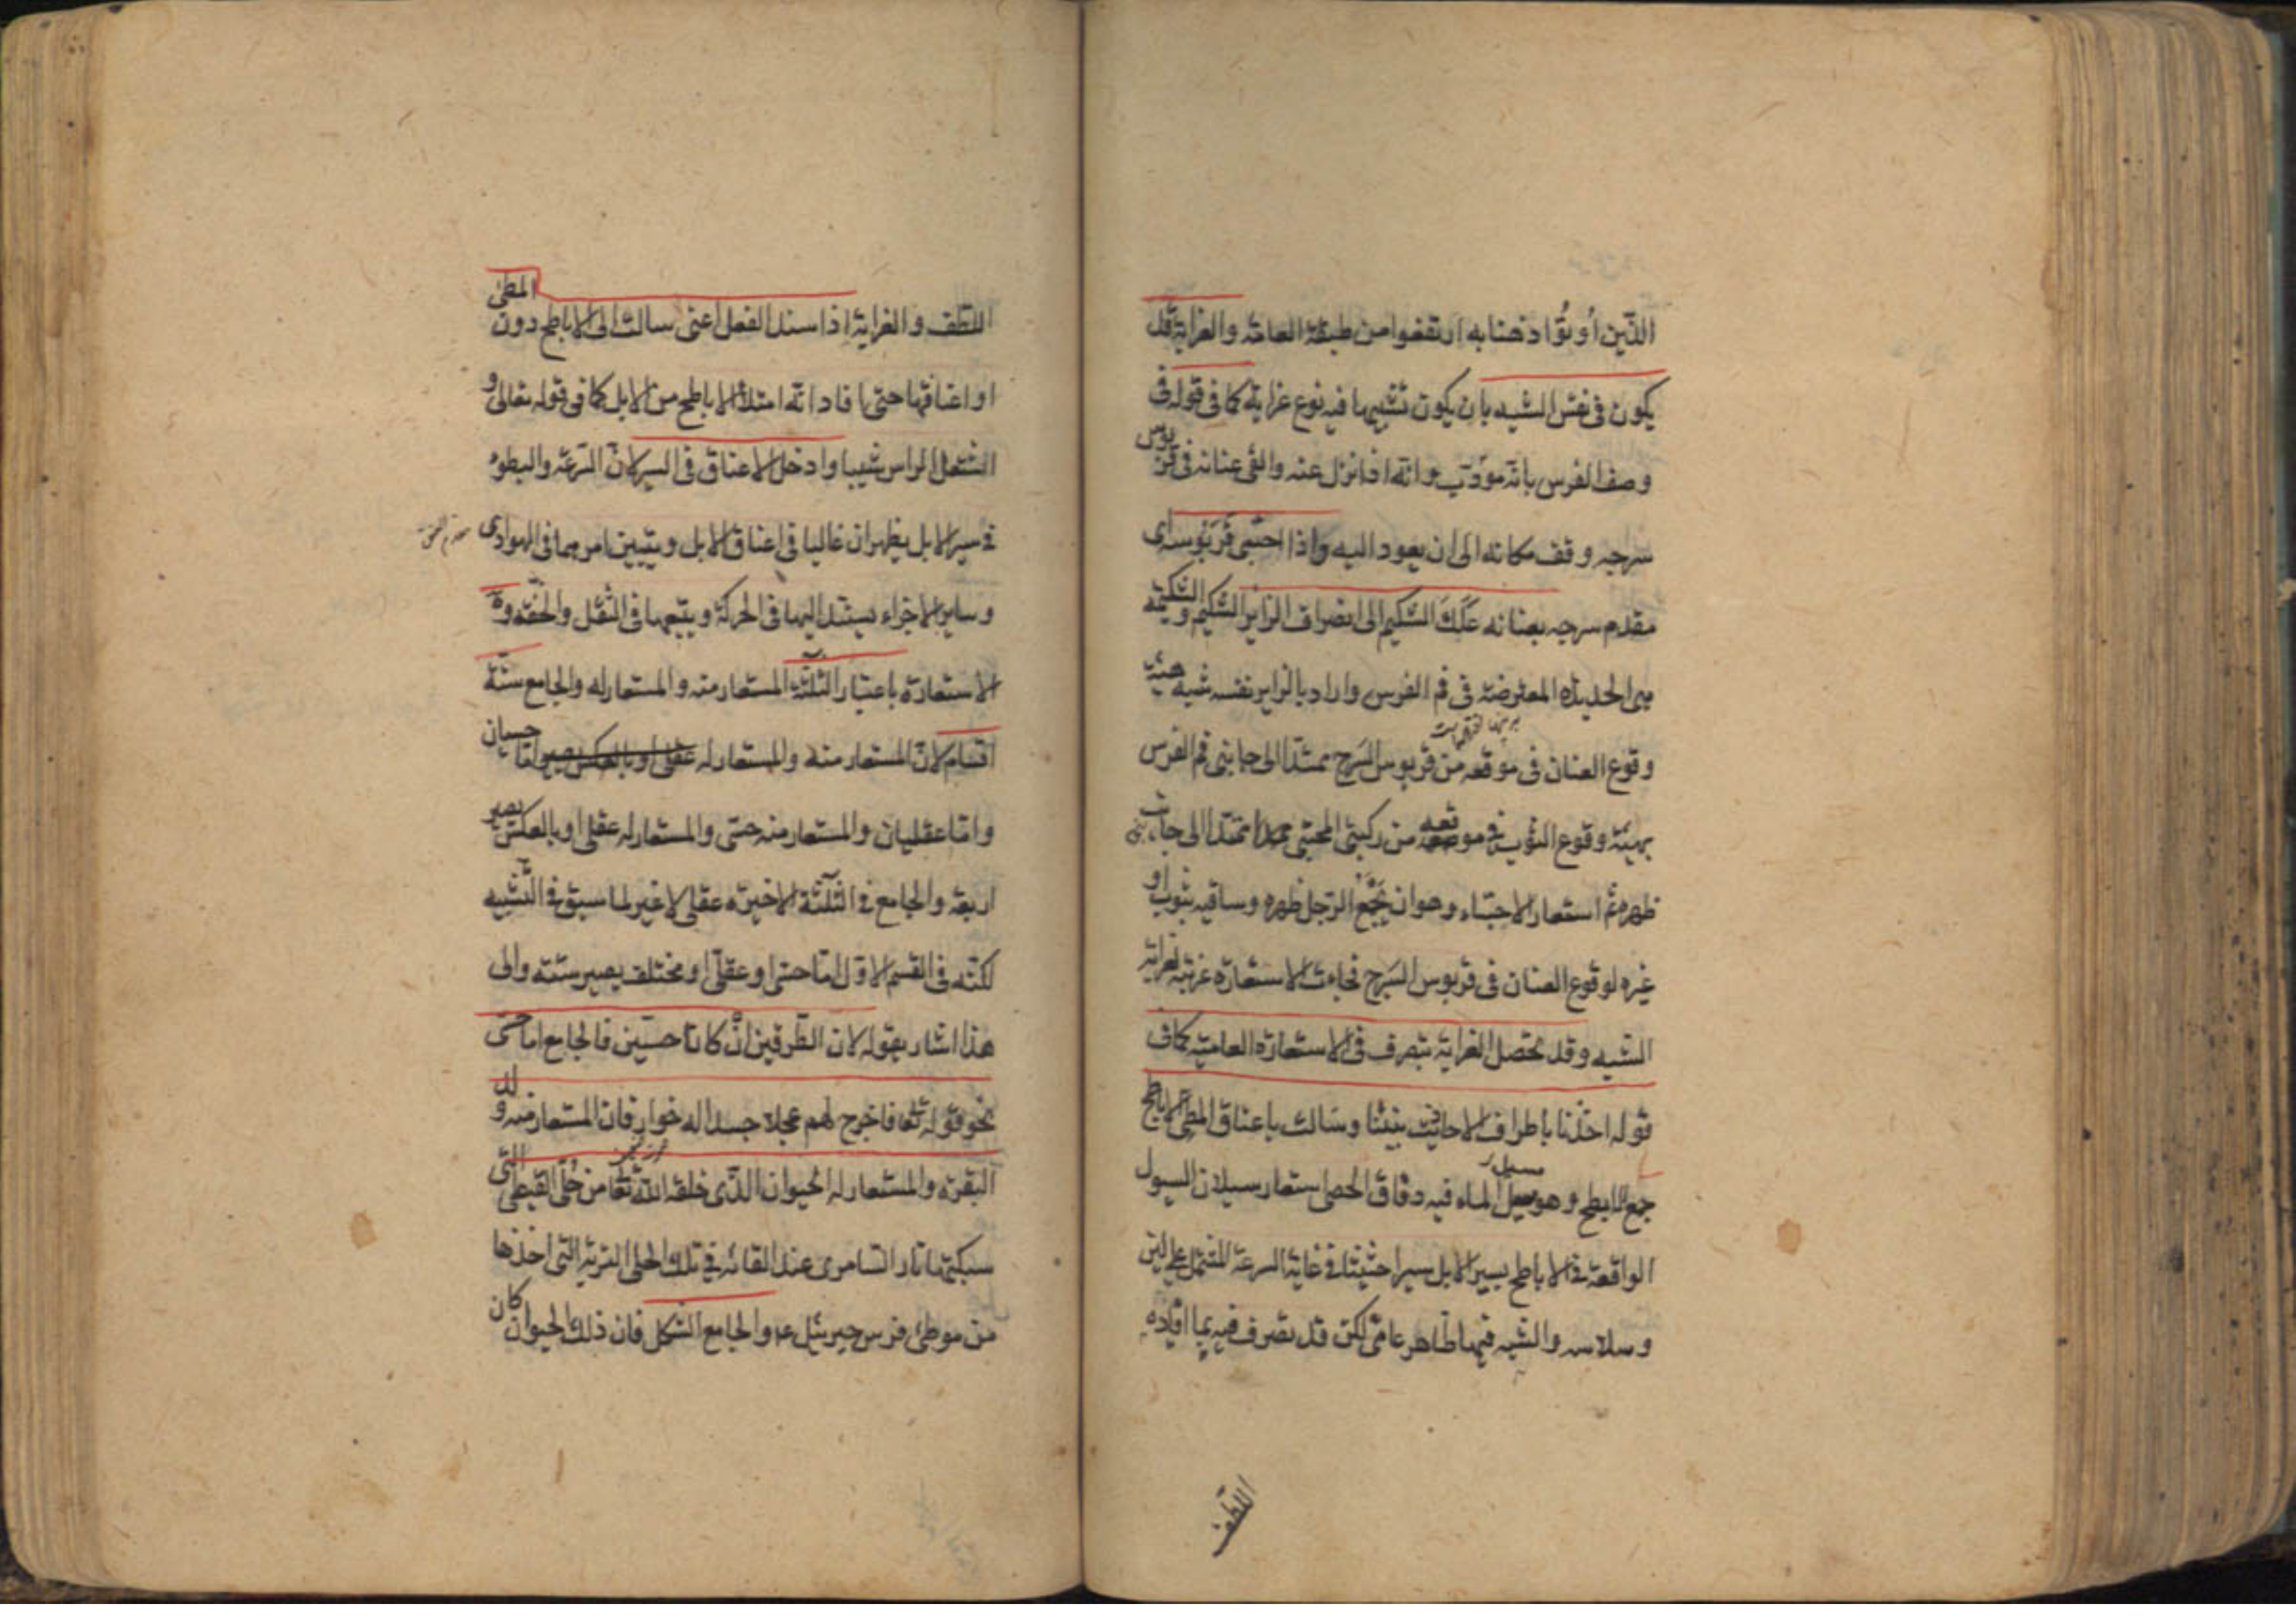 الذين أوتوا ذهنا به ارتفعوا من طبقة العامة والغرابة قد
يكون في نفس الشبه بان يكون تشبيها فيه نوع غرابة كما في قوله في
وصف الفرس بانه مؤدب وانه اذا نزل عنه والقى عنانه في قربوس
سرجه وقف مكانه الى ان يعود اليه واذا احتبى قَرَبُوسه اى
مقدم سرجه بعنانه عَلَكَ الشكيم الى انصراف الزاير الشكيم والشكيمة
هى الحديدة المعترضة في فم الفرس واراد بالزاير نفسه شبه هيئة
وقوع العنان في موقعه من قربوس السَرج ممتدا الى جانبى فم الفرس
بهيئة وقوع الثوب في موقعه من ركبتى المحتبى ممتدا الى جانبى
ظهره ثم استعار الاحتباء وهو ان يَجْمَع الرجل ظهره وساقيه بثوب او
غيره لوقوع العنان في قربوس السَرج فجاءت الاستعارة غريبة لغرابة
الشبه وقد تحصل الغرابة بتصرف في الاستعارة العامية كما في
قوله اخذنا بأطراف الاحاديث بيننا وسالت باعناق المطى الاباطح
جمع الابطح وهو مسيل الماء فيه دقاق الحصى استعار سيلان السيول
الواقعة في الاباطح بسير الابل سيرا حثيثا في غاية السرعة المشتمل على لين
وسلاسه والشبه فيها ظاهر عامى لكن قد تصرف فيه بما افاده
اللطف
اللطف والغرابة اذا سند الفعل اعنى سالت الى الاباطح دون المطى
او اعناقها حتى افاد انه امتلأ الاباطح من الابل كما في قوله تعالى و
اشتعل الراس شيبا وادخل الاعناق في السير لان السرعة والبطوء
في سير الابل يظهران غالبا في اعناق الابل ويتبين امرهما في الهوادى
وساير الاجزاء يستند اليها في الحركة ويتبعها في الثقل والخفة و
الاستعارة باعتبار الثلثة المستعار منه والمستعار له والجامع ستة
اقسام لان المستعار منه والمستعار له عقلى او بالعكس يصير اما حسيان
واما عقليان والمستعار منه حسى والمستعار له عقلى او بالعكس يصير
اربعة والجامع في الثلثة الاخيرة عقلى لا غير لما سبق في التشبيه
لكنه في القسم الاول اما حسى او عقلى او مختلف يصير ستة والى
هذا اشار بقوله لان الطرفين انْ كانا حسيين فالجامع اما حسى
نحو قوله تعا فاخرج لهم عجلا جسدا له خوار فان المستعار منه ولد
البقرة والمستعار له الحيوان الذى خلقه الله تعا من حُلى القبطى التى
سبكتها نار السامرى عند القائه في تلك الحلى التربة التى اخذها
من موطئ فرس جبرئيل ع والجامع الشكل فان ذلك الحيوان كان